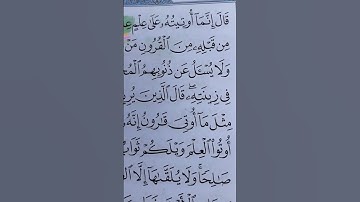 قَالَ إِنَّمَآ أُوتِيتُهُۥ عَلَىٰ عِلْمٍ
مِن قَبْلِهِۦ مِنَ ٱلْقُرُونِ مَنْ
وَلَا يُسْـَٔلُ عَن ذُنُوبِهِمُ
فِى زِينَتِهِۦۖ قَالَ ٱلَّذِينَ
مِثْلَ مَآ أُوتِىَ قَٰرُونُ إِنَّهُۥ
أُوتُوا۟ ٱلْعِلْمَ وَيْلَكُمْ ثَوَابُ
صَٰلِحًاۚ وَلَا يُلَقَّىٰهَآ إِلَّا